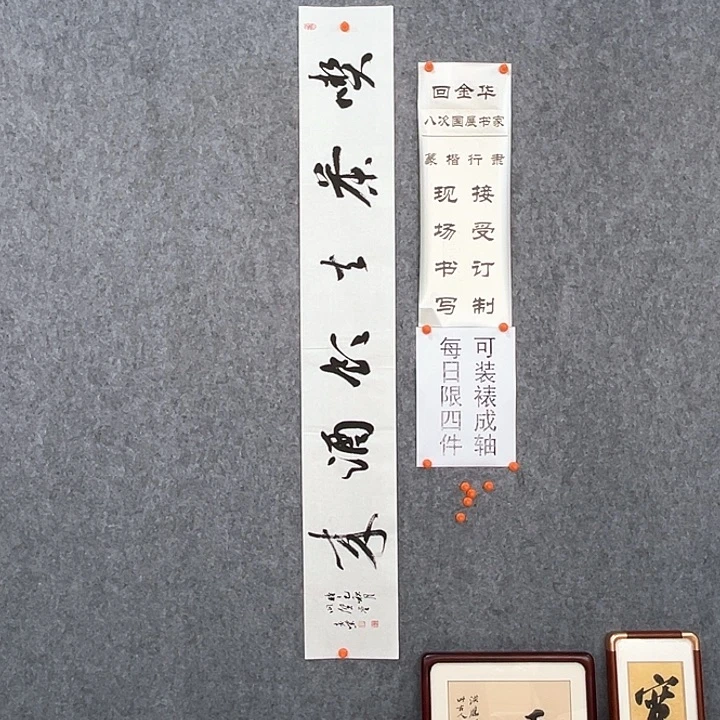 喫茶去饮酒来
回金华
八次国展书家
篆楷行隶
接受订制
现场书写
可装裱成轴
每日限四件